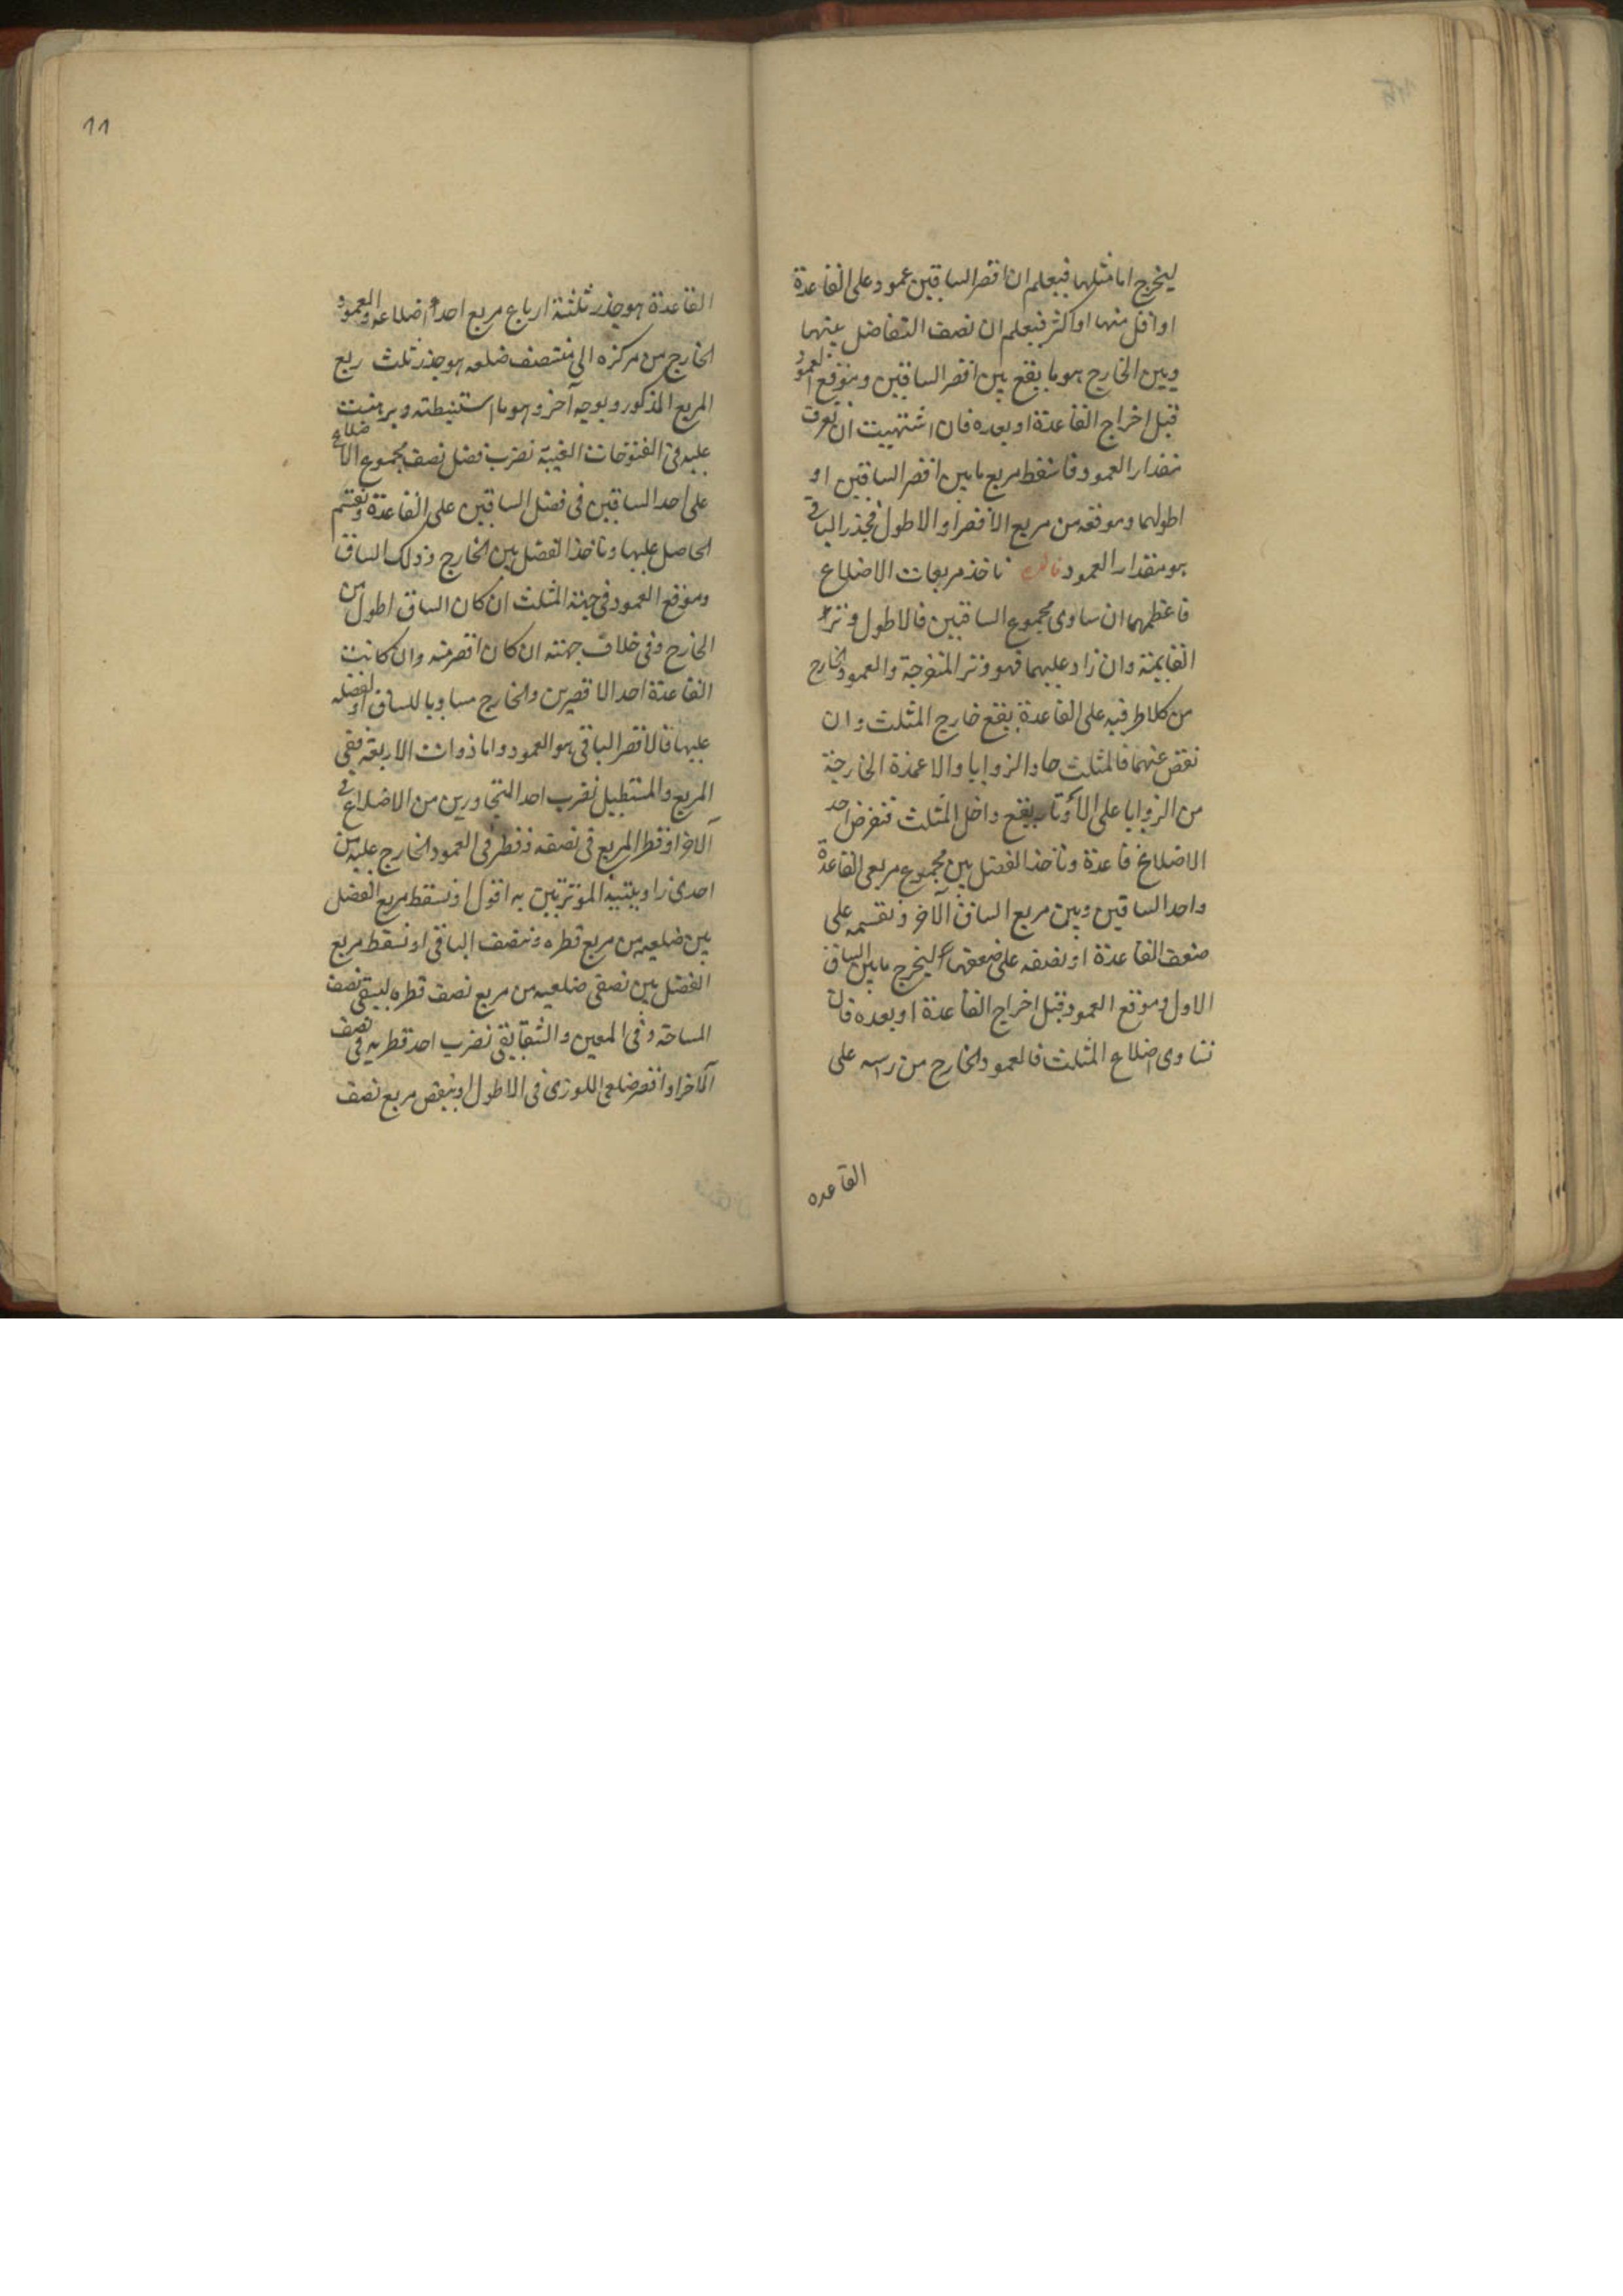 ليخرج اما مثلها فيعلم ان اقصر الساقين عمود على القاعدة
او اقل منها او اكثر فيعلم ان نصف التفاضل بينهما
وبين الخارج هو ما يقع بين اقصر الساقين وموقع العمود
قبل اخراج القاعدة او بعده فان اشتهيت ان تعرف
مقدار العمود فاسقط مربع ما بين اقصر الساقين او
اطولهما وموقعه من مربع الاقصر او الاطول فجذر الباقي
هو مقدار العمود ناخذ مربعات الاضلاع
فاعظمها ان ساوى مجموع الساقين فالاطول وتر
القايمة وان زاد عليهما فهو وتر المنفرجة والعمود الخارج
من كلا طرفيه على القاعدة يقع خارج المثلث وان
نقص عنهما فالمثلث حاد الزوايا والاعمدة الخارجة
من الزوايا على الاوتار يقع داخل المثلث فنفرض احد
الاضلاع قاعدة وناخذ الفضل بين مجموع مربعى القاعدة
واحد الساقين وبين مربع الساق الآخر ونقسمه على
ضعف القاعدة او نصفه على ليخرج ما بين الساق
الاول وموقع العمود قبل اخراج القاعدة او بعده فان
تساوى اضلاع المثلث فالعمود الخارج من راسه على
القاعده
11
القاعدة هو جذر ثلثة ارباع مربع احد اضلاعه والعمود
الخارج من مركزه الى منتصف ضلعه هو جذر ثلث ربع
المربع المذكور وبوجه آخر وهو ما استنبطته وبرهنت
عليه فى الفتوحات الغيبة نضرب فضل نصف مجموع الاضلاع
على احد الساقين فى فضل الساقين على القاعدة ونقسم
الحاصل عليها وناخذ الفضل بين الخارج وذلك الساق
وموقع العمود فى جهة المثلث ان كان الساق اطول من
الخارج وفى خلاف جهته ان كان اقصر منه وان كانت
القاعدة احد الاقصرين والخارج مساويا للساق او لفضله
عليها فالاقصر الباقى هو العمود واما ذوات الاربعة ففى
المربع والمستطيل نضرب احد المتجاورين من الاضلاع فى
الآخر او قطر المربع فى نصفه وقطره فى العمود الخارج عليه من
احدى زاويتيه الموترتين به اقول او نسقط مربع الفضل
بين ضلعيه من مربع قطره وننصف الباقى او نسقط مربع
الفضل بين نصفى ضلعيه من مربع نصف قطره ليبقى نصف
المساحة وفى المعين والشقايقى نضرب احد قطريه فى نصف
الآخر او اقصر ضلعى اللوزى فى الاطول وينقص مربع نصف